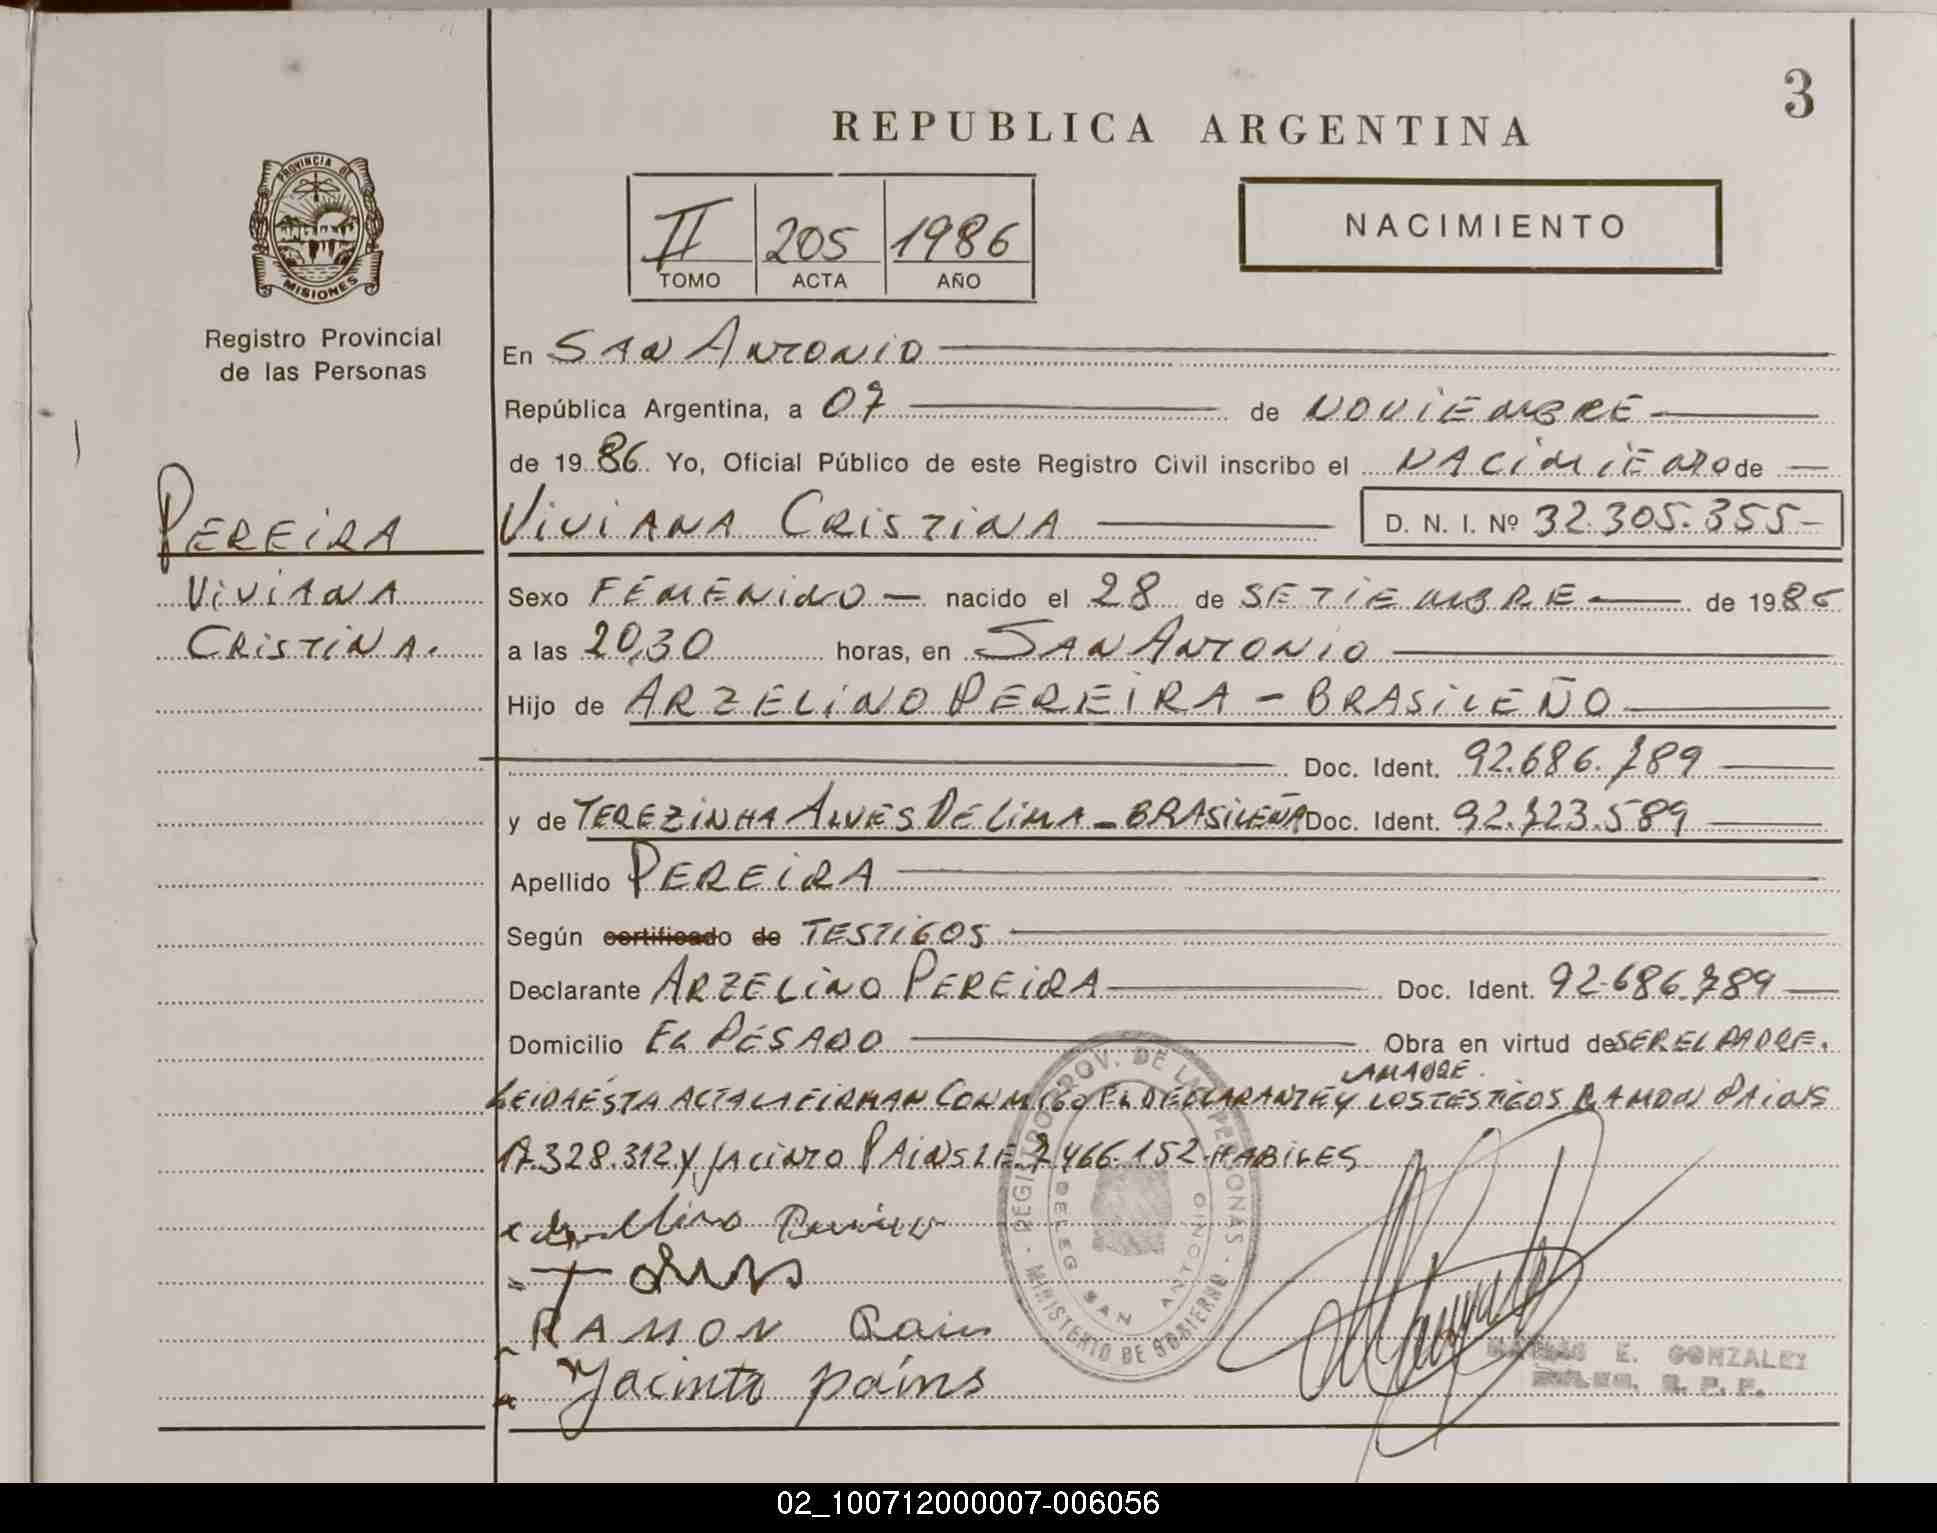 3
REPUBLICA ARGENTINA
PROVINCIA DE
MISIONES
Registro Provincial
de las Personas
II 205 1986
TOMO ACTA AÑO
NACIMIENTO
En SAN ANTONIO
República Argentina, a 07 de NOVIEMBRE
de 1986. Yo, Oficial Público de este Registro Civil inscribo el NACIMIENTO de
PEREIRA
VIVIANA
CRISTINA.
VIVIANA CRISTINA D. N. I. Nº 32.305.355-
Sexo FEMENINO nacido el 28 de SETIEMBRE de 1986
a las 20,30 horas, en SAN ANTONIO
Hijo de ARZELINO PEREIRA - BRASILEÑO
Doc. Ident. 92.686.789
y de TEREZINHA ALVES DE LIMA - BRASILEÑA Doc. Ident. 92.723.589
Apellido PEREIRA
Según certificado de TESTIGOS
Declarante ARZELINO PEREIRA Doc. Ident. 92.686.789
Domicilio EL PESADO Obra en virtud de SER EL PADRE.
LA MADRE.
LEIDA ESTA ACTA LA FIRMAN CONMIGO EL DECLARANTE Y LOS TESTIGOS RAMON PAINS
17.328.312 Y JACINTO PAINS L.E. 7.466.152 HABILES
RAMON Pains
Jacinto pains
REGISTRO PROV. DE LAS PERSONAS
MINISTERIO DE GOBIERNO
DELEG SAN ANTONIO
E. GONZALEZ
R. P. P.
02_100712000007-006056